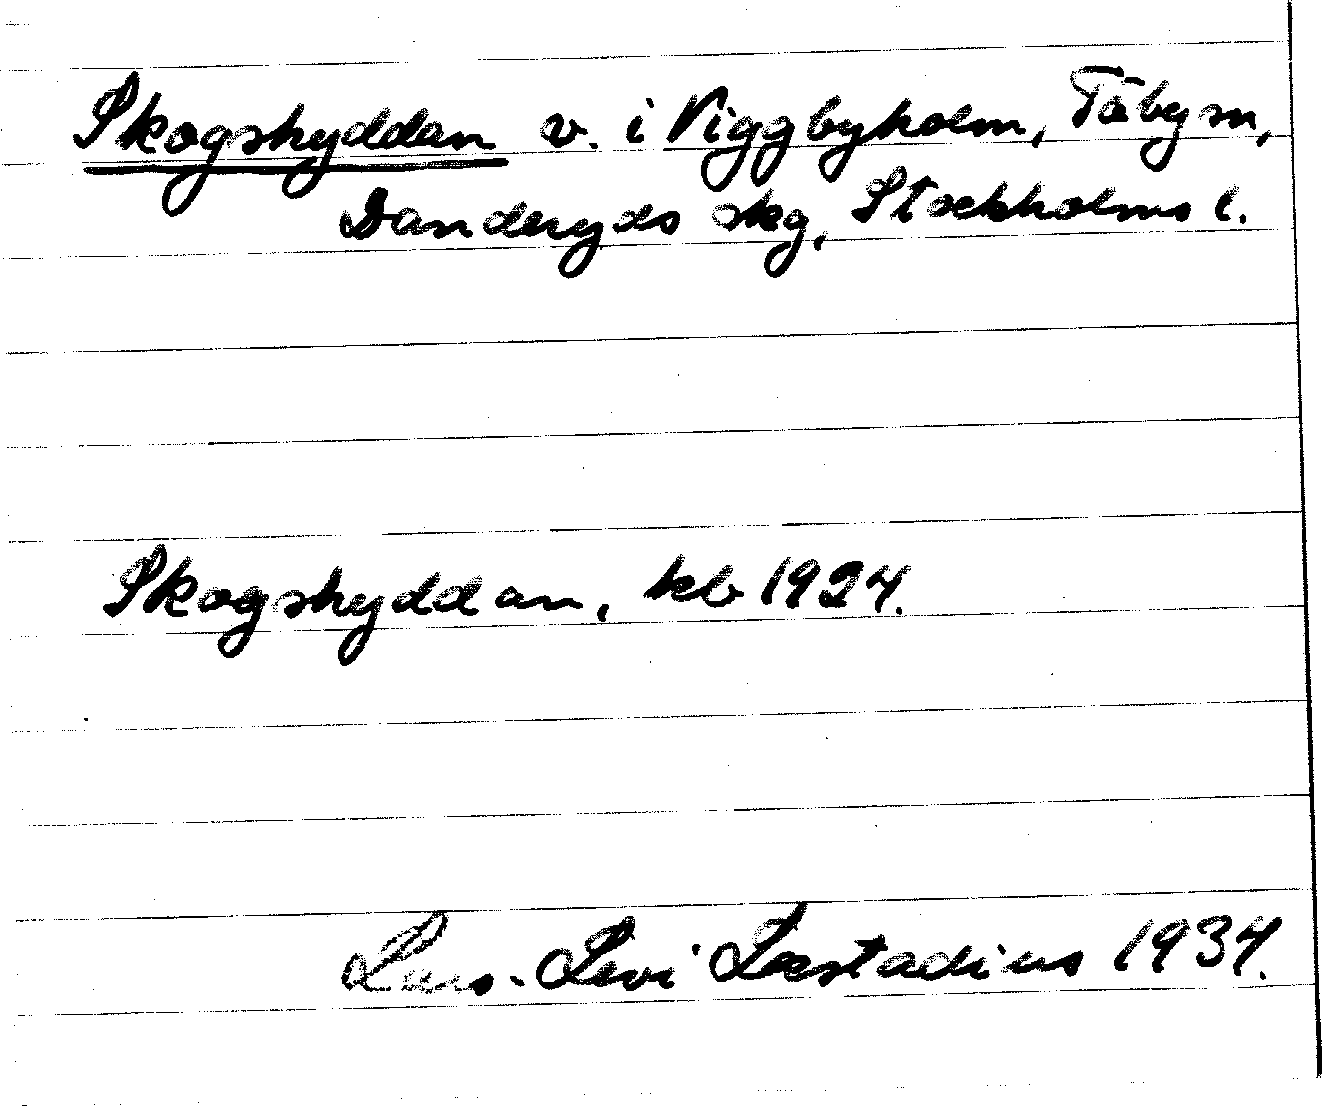 Skogshyddan v. i Viggbyholm, Täby sn,
Danderyds skg, Stockholms l.
Skogshyddan, kb 1924.
Lars-Levi Læstadius 1934.